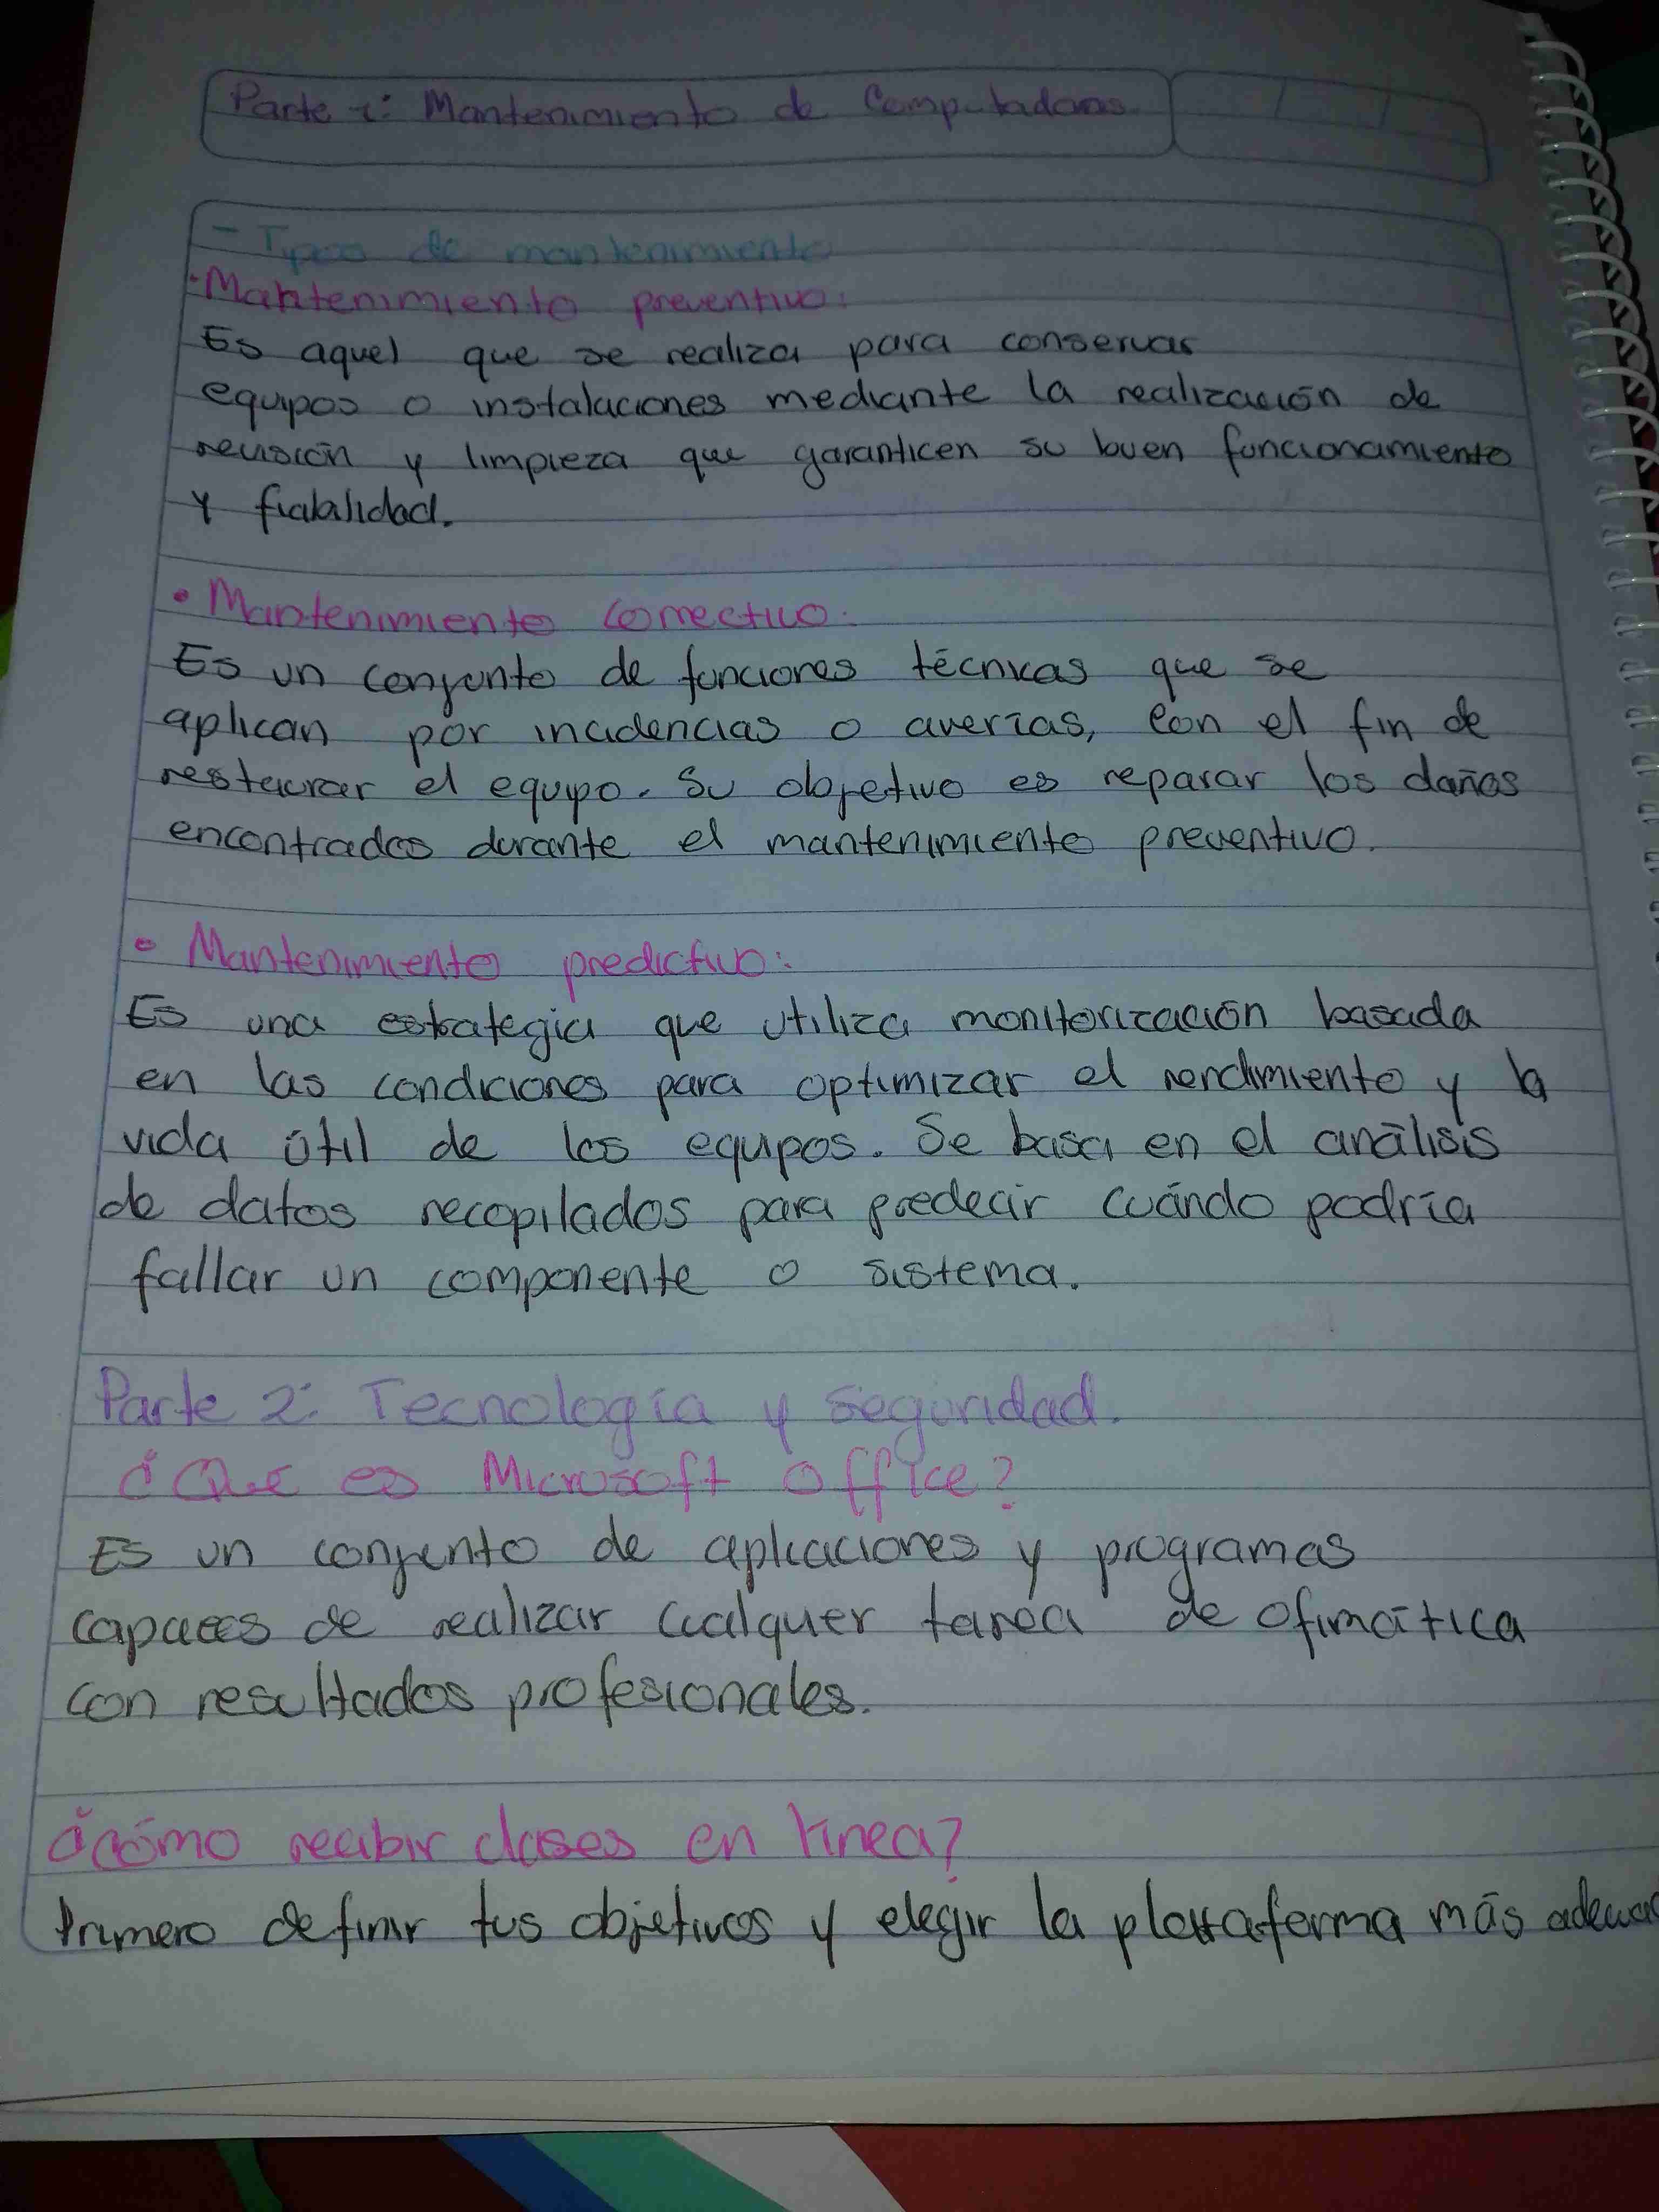 Parte 1: Mantenimiento de Computadoras
- Tipos de mantenimiento
• Mantenimiento preventivo:
Es aquel que se realiza para conservar
equipos o instalaciones mediante la realización de
revisión y limpieza que garanticen su buen funcionamiento
y fiabilidad.
• Mantenimiento correctivo:
Es un conjunto de funciones técnicas que se
aplican por incidencias o averías, con el fin de
restaurar el equipo. Su objetivo es reparar los daños
encontrados durante el mantenimiento preventivo.
• Mantenimiento predictivo:
Es una estrategia que utiliza monitorización basada
en las condiciones para optimizar el rendimiento y la
vida útil de los equipos. Se basa en el análisis
de datos recopilados para predecir cuándo podría
fallar un componente o sistema.
Parte 2: Tecnología y seguridad.
¿Qué es Microsoft office?
Es un conjunto de aplicaciones y programas
capaces de realizar cualquer tarea de ofimática
con resultados profesionales.
¿cómo recibir clases en línea?
Primero definir tus objetivos y elegir la plataforma más